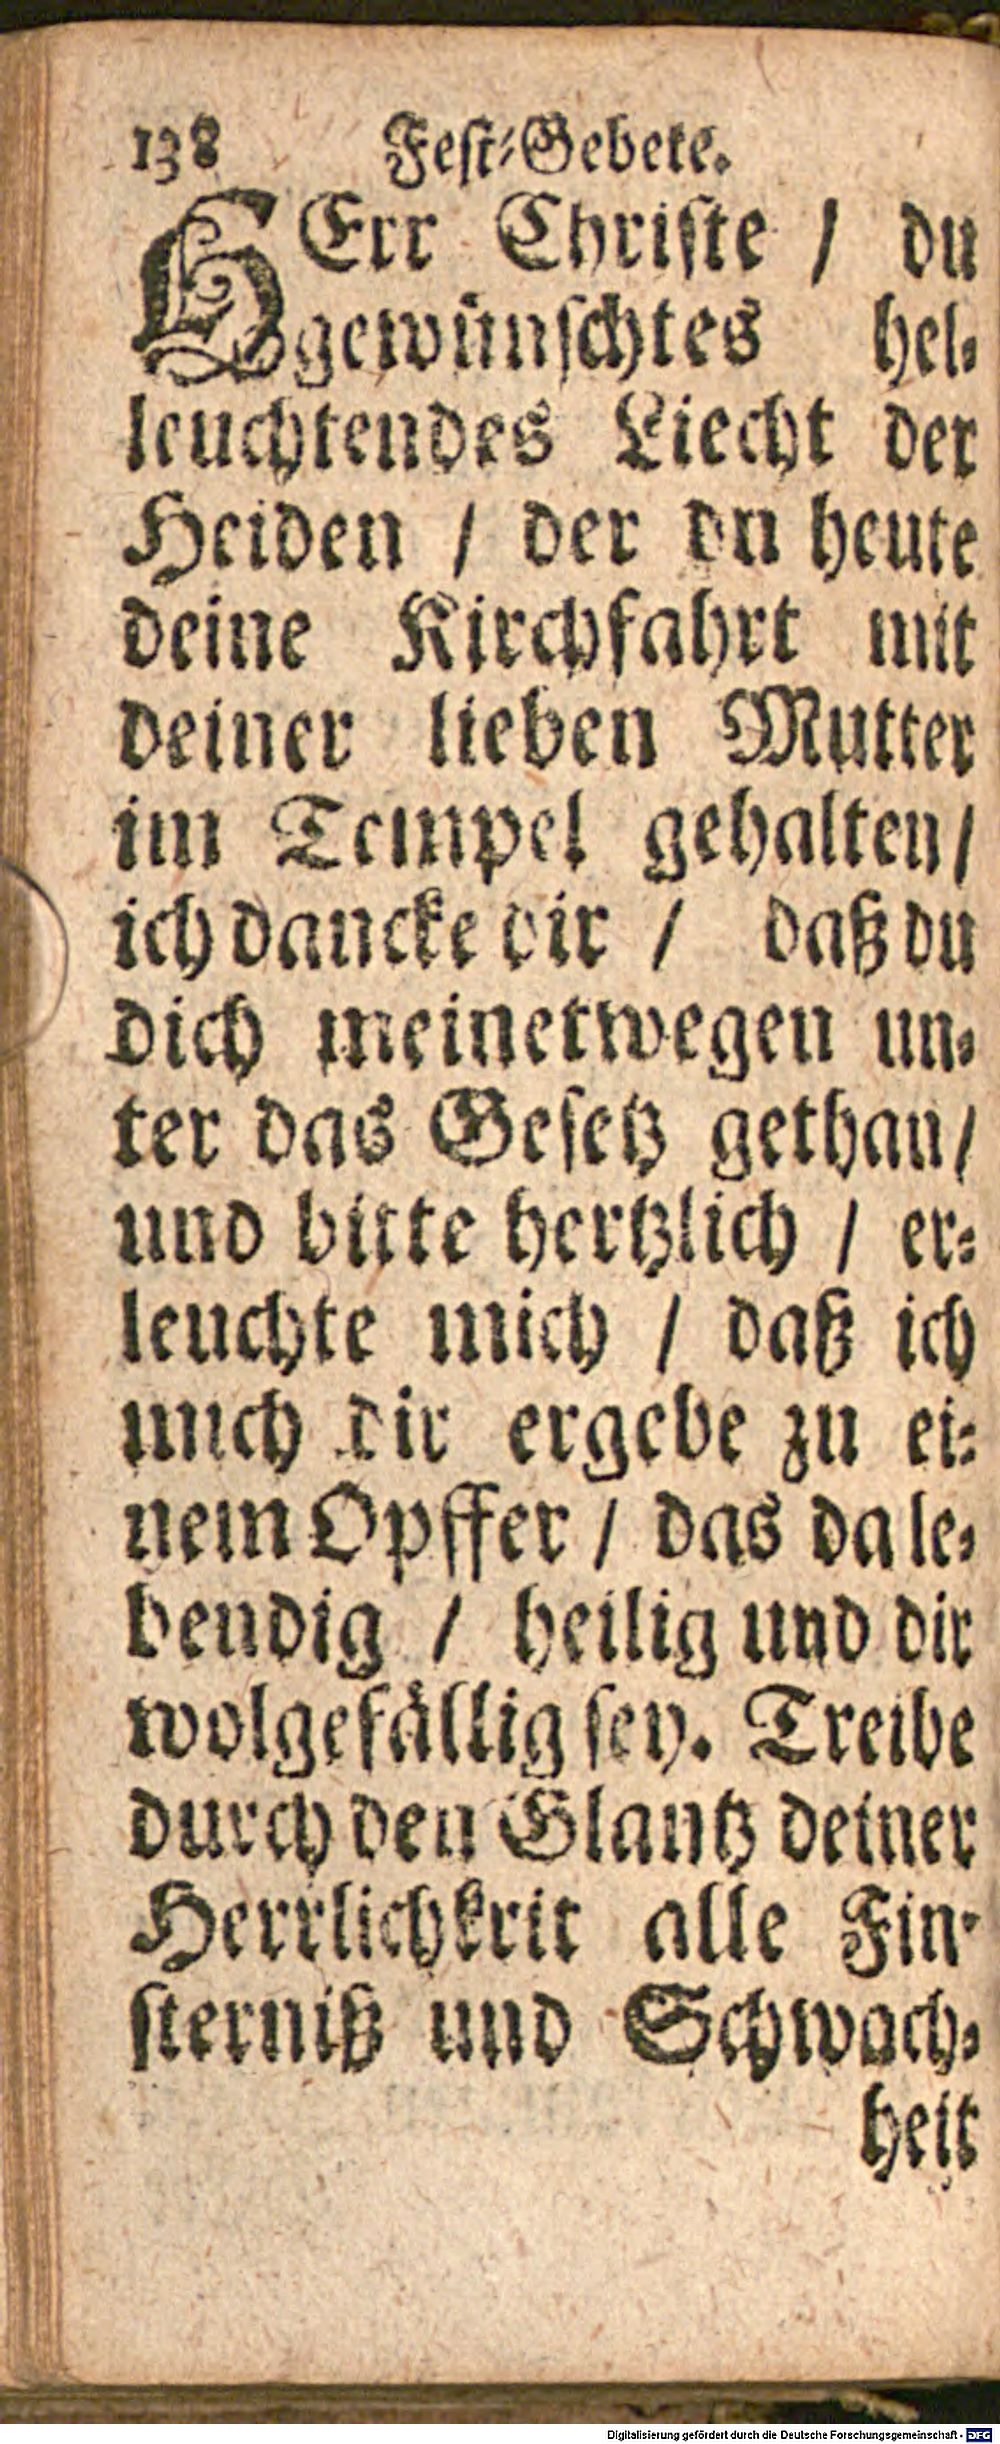 138 Fest-Gebete.
HErr Christe / du
gewünschtes hel-
leuchtendes Liecht der
Heiden / der dn heute
deine Kirchfahrt mit
deiner lieben Mutter
im Tempel gehalten/
ich dancke dir / daß du
dich meinetwegen un-
ter das Gesetz gethan/
und bitte hertzlich / er-
leuchte mich / daß ich
mich dir ergebe zu ei-
nem Opffer / das da le-
bendig / heilig und dir
wolgefällig sey. Treibe
durch den Glantz deiner
Herrlichkrit alle Fin-
sterniß und Schwach-
heit
Digitalisierung gefördert durch die Deutsche Forschungsgemeinschaft - DFG